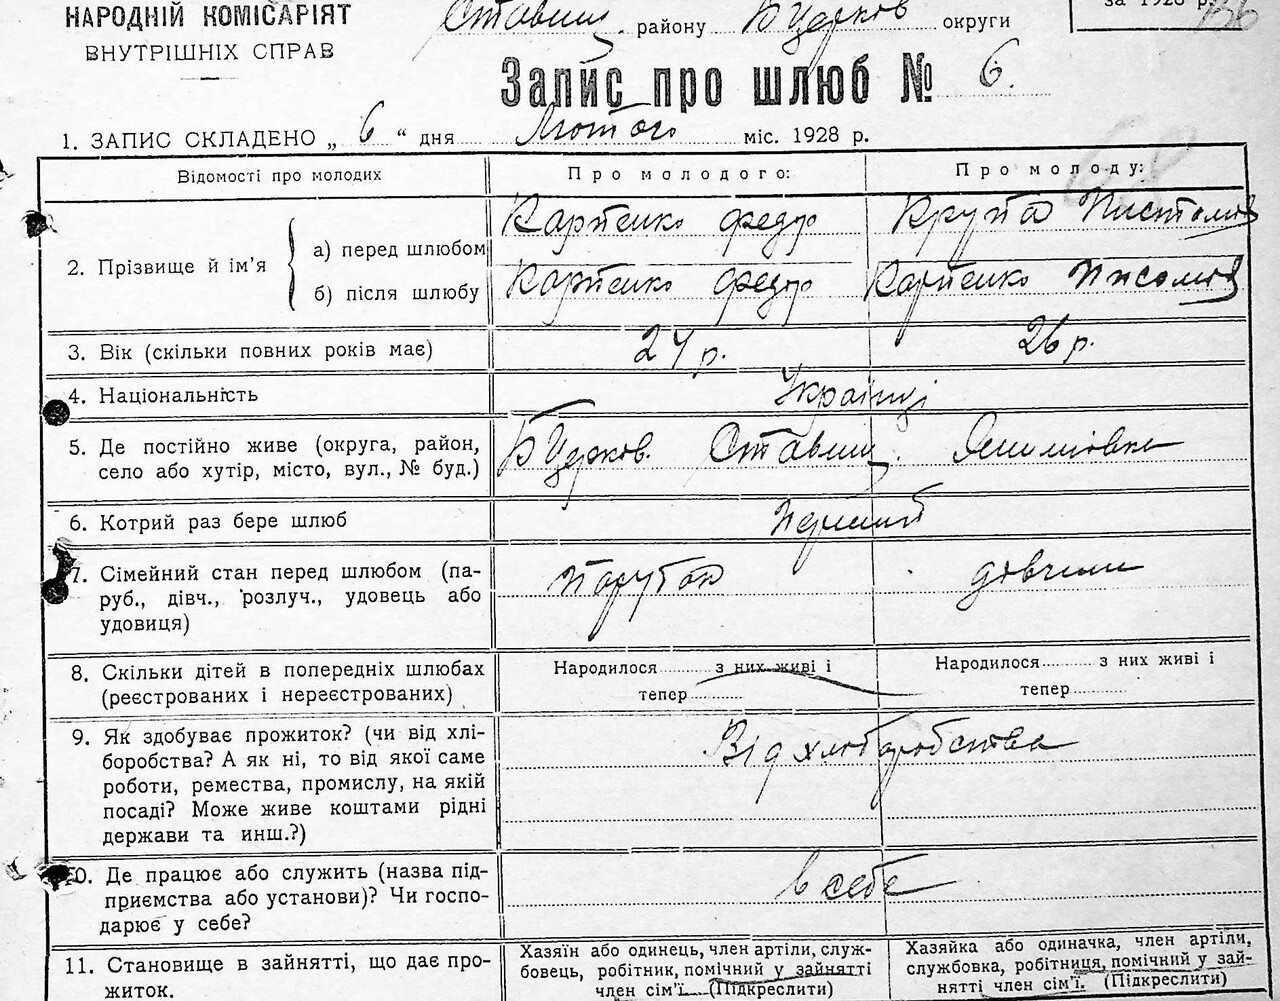 НАРОДНІЙ КОМІСАРІЯТ
ВНУТРІШНІХ СПРАВ
Ставищ. району Б Церков округи
за 1928 р.
Запис про шлюб № 6.
1. ЗАПИС СКЛАДЕНО „ 6 “ дня Лютого міс. 1928 р.
Відомості про молодих Про молодого: Про молоду:
2. Прізвище й ім'я
а) перед шлюбом Карпенко Федор Крупа
б) після шлюбу Карпенко Федор Карпенко
3. Вік (скільки повних років має) 24 р. 26 р.
4. Національність Українці
5. Де постійно живе (округа, район,
село або хутір, місто, вул., № буд.) Б Церков. Ставищ.
6. Котрий раз бере шлюб Перший
7. Сімейний стан перед шлюбом (па-
руб., дівч., розлуч., удовець або
удовиця) парубок дівчина
8. Скільки дітей в попередніх шлюбах
(реєстрованих і нереєстрованих)
Народилося з них живі і
тепер
Народилося з них живі і
тепер
9. Як здобуває прожиток? (чи від хлі-
боробства? А як ні, то від якої саме
роботи, ремества, промислу, на якій
посаді? Може живе коштами рідні
держави та инш.?)
Від хлоборобства
10. Де працює або служить (назва під-
приємства або установи)? Чи госпо-
дарює у себе?
в себе
11. Становище в зайнятті, що дає про-
житок.
Хазяїн або одинець, член артіли, служ-
бовець, робітник, помічний у зайнятті
член сім'ї. (Підкреслити)
Хазяйка або одиначка, член артіли,
службовка, робітниця, помічний у зай-
нятті член сім'ї. (Підкреслити)